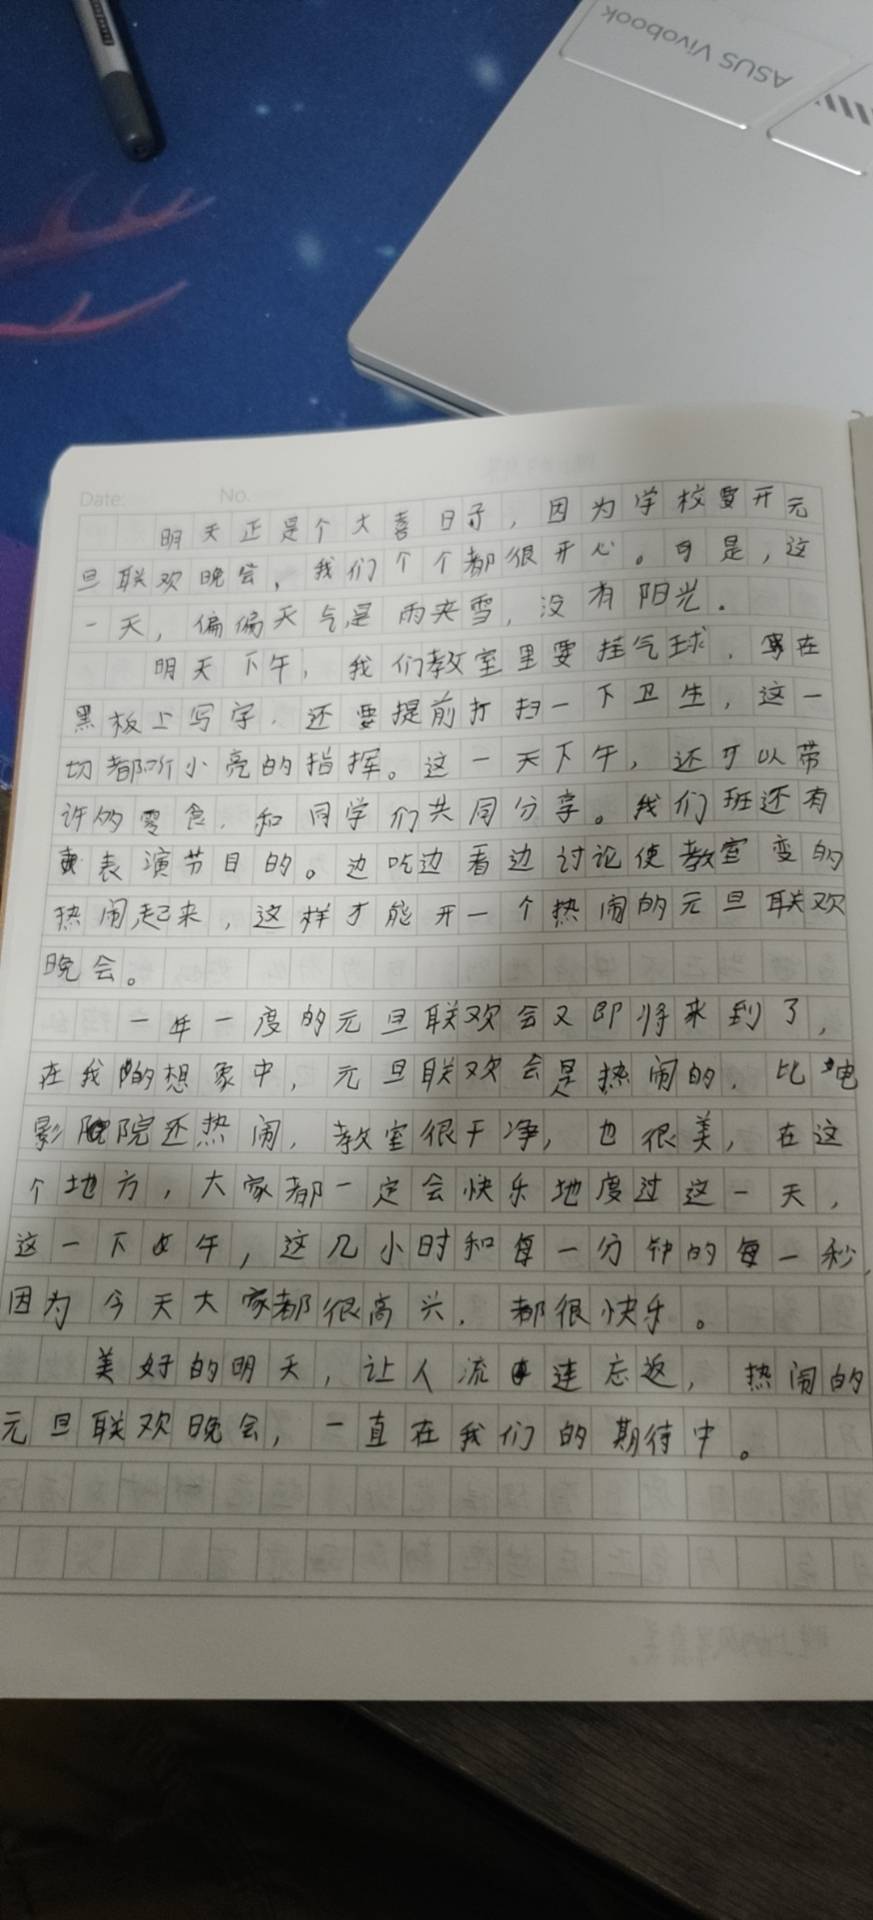 ASUS Vivobook
Date:
No.
明天正是个大喜日子，因为学校要开元
旦联欢晚会，我们个个都很开心。可是，这
一天，偏偏天气是雨夹雪，没有阳光。
明天下午，我们教室里要挂气球，在
黑板上写字，还要提前打扫一下卫生，这一
切都听小亮的指挥。这一天下午，还可以带
许多零食，和同学们共同分享。我们班还有
表演节目的。边吃边看边讨论使教室变的
热闹起来，这样才能开一个热闹的元旦联欢
晚会。
一年一度的元旦联欢会又即将来到了，
在我的想象中，元旦联欢会是热闹的，比电
影院还热闹，教室很干净，也很美，在这
个地方，大家都一定会快乐地度过这一天，
这一下午，这几小时和每一分钟的每一秒，
因为今天大家都很高兴，都很快乐。
美好的明天，让人流连忘返，热闹的
元旦联欢晚会，一直在我们的期待中。